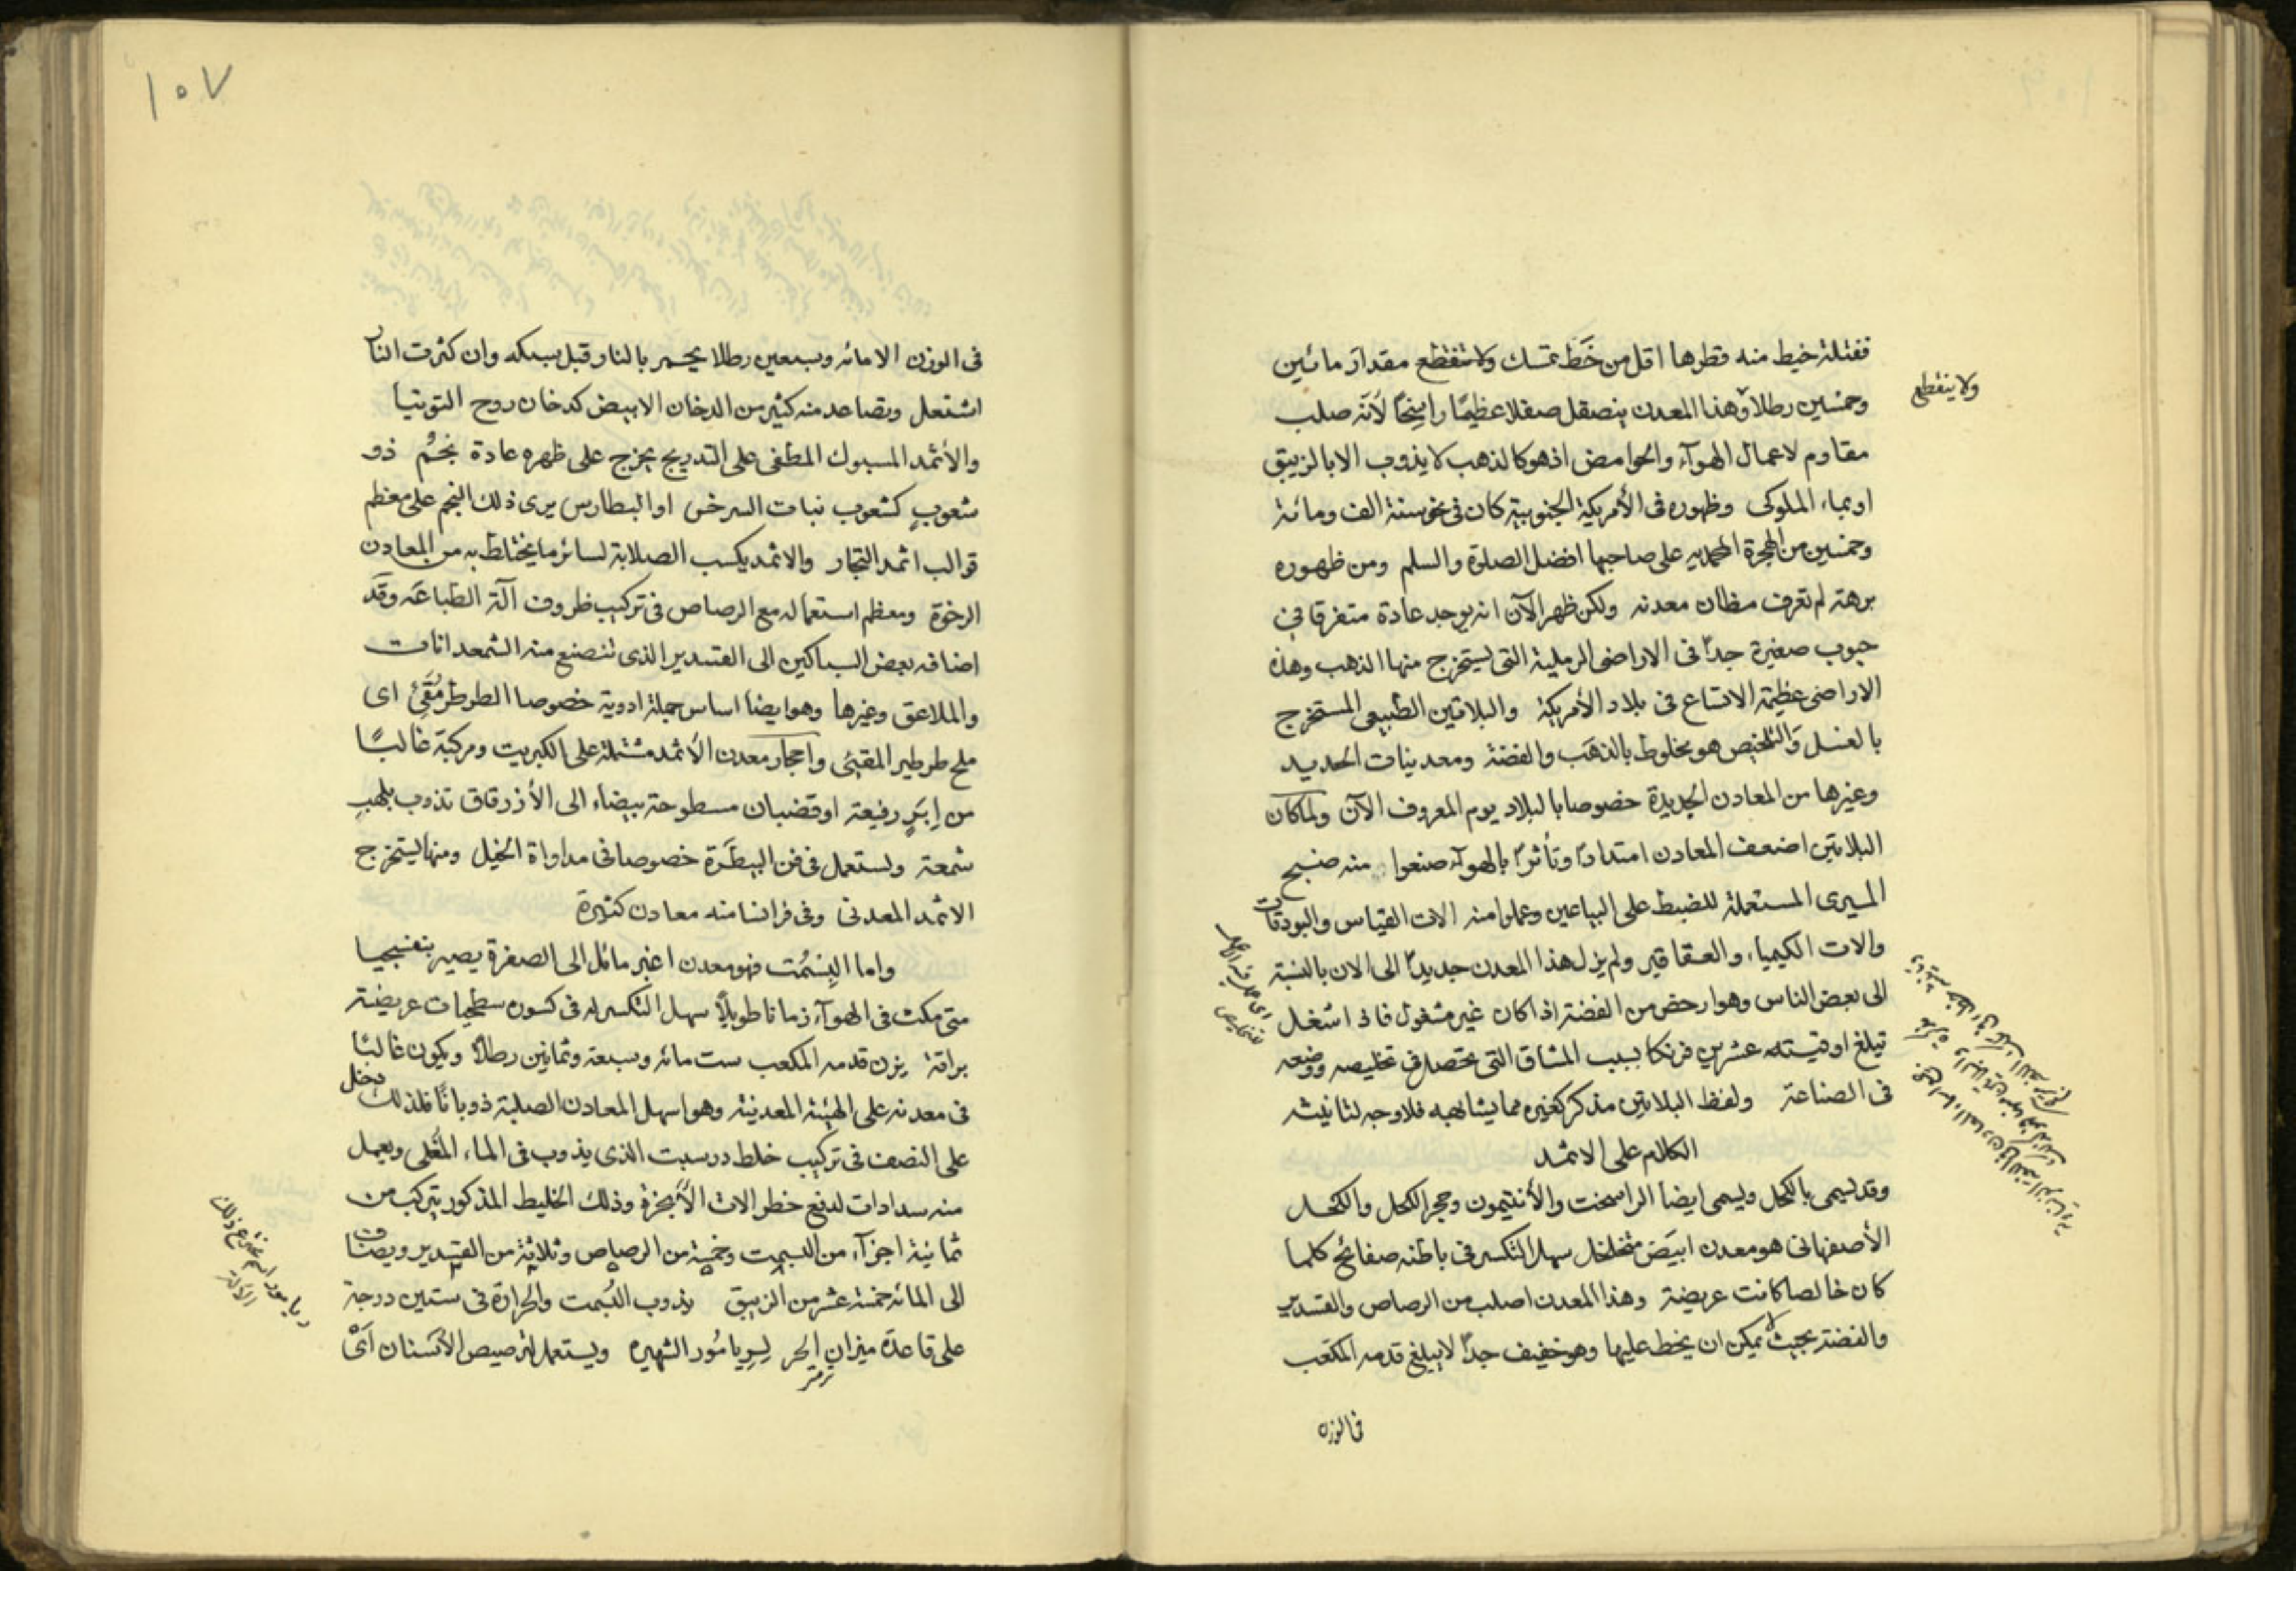 ففتلة خيط منه قطرها اقل من خَط تمسك ولا تنقطع مقدارَ مائين
ولا ينقطع
وخمسين رطلا وهذا المعدن ينصقل صقلا عظيمًا راسِخًا لأنّه صلب
مقاوم لاعمال الهوآء والحوامض اذ هو كالذهب لا يذوب الا بالزيبق
او بماء الملوكى وظهوره فى الأمريكة الجنوبية كان فى نحو سنة الف ومائة
وخمسين من الهجرة المحمديه على صاحبها افضل الصلوة والسلم ومن ظهوره
برهته لم تعرف مظان معدنه ولكن ظهر الآن انه يوجد عادة متفرقا فى
حبوب صغيرة جداً فى الاراضى الرملية التى يستخرج منها الذهب وهذه
الاراضى عظيمة الاتساع فى بلاد الأمريكة والبلاتين الطبيعى المستخرج
بالغسل وَالتلخيص هو مخلوط بالذهَب والفضة ومعدنيات الحديد
وغيرها من المعادن الجديدة خصوصا بالبلاديوم المعروف الآن ولما كان
البلاتين اضعف المعادن امتدادًا وتأثرًا بالهوآء صنعوا منه صنج
الميرى المستعملة للضبط على البياعين وعملوا منه الات القياس والبودقات
والات الكيمياء والعقاقير ولم يزل هذا المعدن جديدًا الى الان بالنسبة
الى بعض الناس وهو ارخص من الفضة اذا كان غير مشغول فاذا اشتغل
تبلغ اوقيته عشرين فرنكا بسبب المشاق التى تحصل فى تخليصه ووضعه
فى الصناعة ولفظ البلاتين مذكر كغيره مما يشابهه فلا وجه لتانيثه
الكلام على الاثمد
وقد يسمى بالكحل ويسمى ايضا الراسخت والأنتيمون وحجر الكحل والكحل
الأصفهانى هو معدن ابيَض متخلخل سهل التكسر فى باطنه صفائح كلما
كان خالصا كانت عريضة وهذا المعدن اصلب من الرصاص والقسدير
والفضة بحيث لا يمكن ان يخط عليها وهو خفيف جداً لا يبلغ قدمه المكعب
فى الوزن
١٠٧
فى الوزن الا مائه وسبعين رطلا يحمر بالنار قبل سبكه وان كثرت النار
اشتعل وتصاعد منه كثير من الدخان الابيض كدخان روح التوتيا
والأثمد المسبوك المطفى على التدريج يخرج على ظهره عادة نجمٌ ذو
شعوبٍ كشعوب نبات السرخس او البطارس يرى ذلك النجم على معظم
قوالب اثمد التجار والاثمد يكسب الصلابة لسائر ما يختلط به من المعادن
الرخوة ومعظم استعماله مع الرصاص فى تركيب ظروف آلة الطباعَه وقَد
اضافه بعض السباكين الى القسدير الذى تنصنع منه الشمعدانات
والملاعق وغيرها وهو ايضا اساس جملة ادوية خصوصا الطرطر مُقَيِّئ اى
ملح طرطير المقيئى واحجار معدن الأثمد مشتملة على الكبريت ومركبة غالبًا
من اِبَرٍ رفيعة او قضبان مسطوحة بيضاء الى الأزرقاق تذوب بلهبِ
شمعة وتستعمل فى فن البيطَرة خصوصا فى مداواة الخيل ومنها يستخرج
الاثمد المعدنى وفى فرانسا منه معادن كثيرة
واما البِسْمُت فهو معدن اغبر مائل الى الصفرة يصير بنفسجيا
متى مكث فى الهوآء زمانا طويلاً سهل التكسر له فى كسوره سطحيات عريضة
براقة يزن قدمه المكعب ست مائه وسبعة وثمانين رطلاً ويكون غالبًا
فى معدنه على الهيئة المعدنية وهو اسهل المعادن الصلبة ذوبانًا فلذلك دخل
على النصف فى تركيب خلط درسبت الذى يذوب فى الماء المُغلى ويعمل
منه سدادات لدفع خطر الات الأبخرة وذلك الخليط المذكور يتركب من
ثمانية اجزآء من البسمت وخمسة من الرصاص وثلاثة من القسدير ويضاف
الى المائه خمسة عشر من الزيبق يذوب البُسمت والحرارة فى ستين درجة
على قاعدة ميزان الحر لِرِيامُور الشهيره ويستعمل لترصيص الأسنان اَىْ
ترمتر
ريامور اسم مخترع ذلك
الآلة